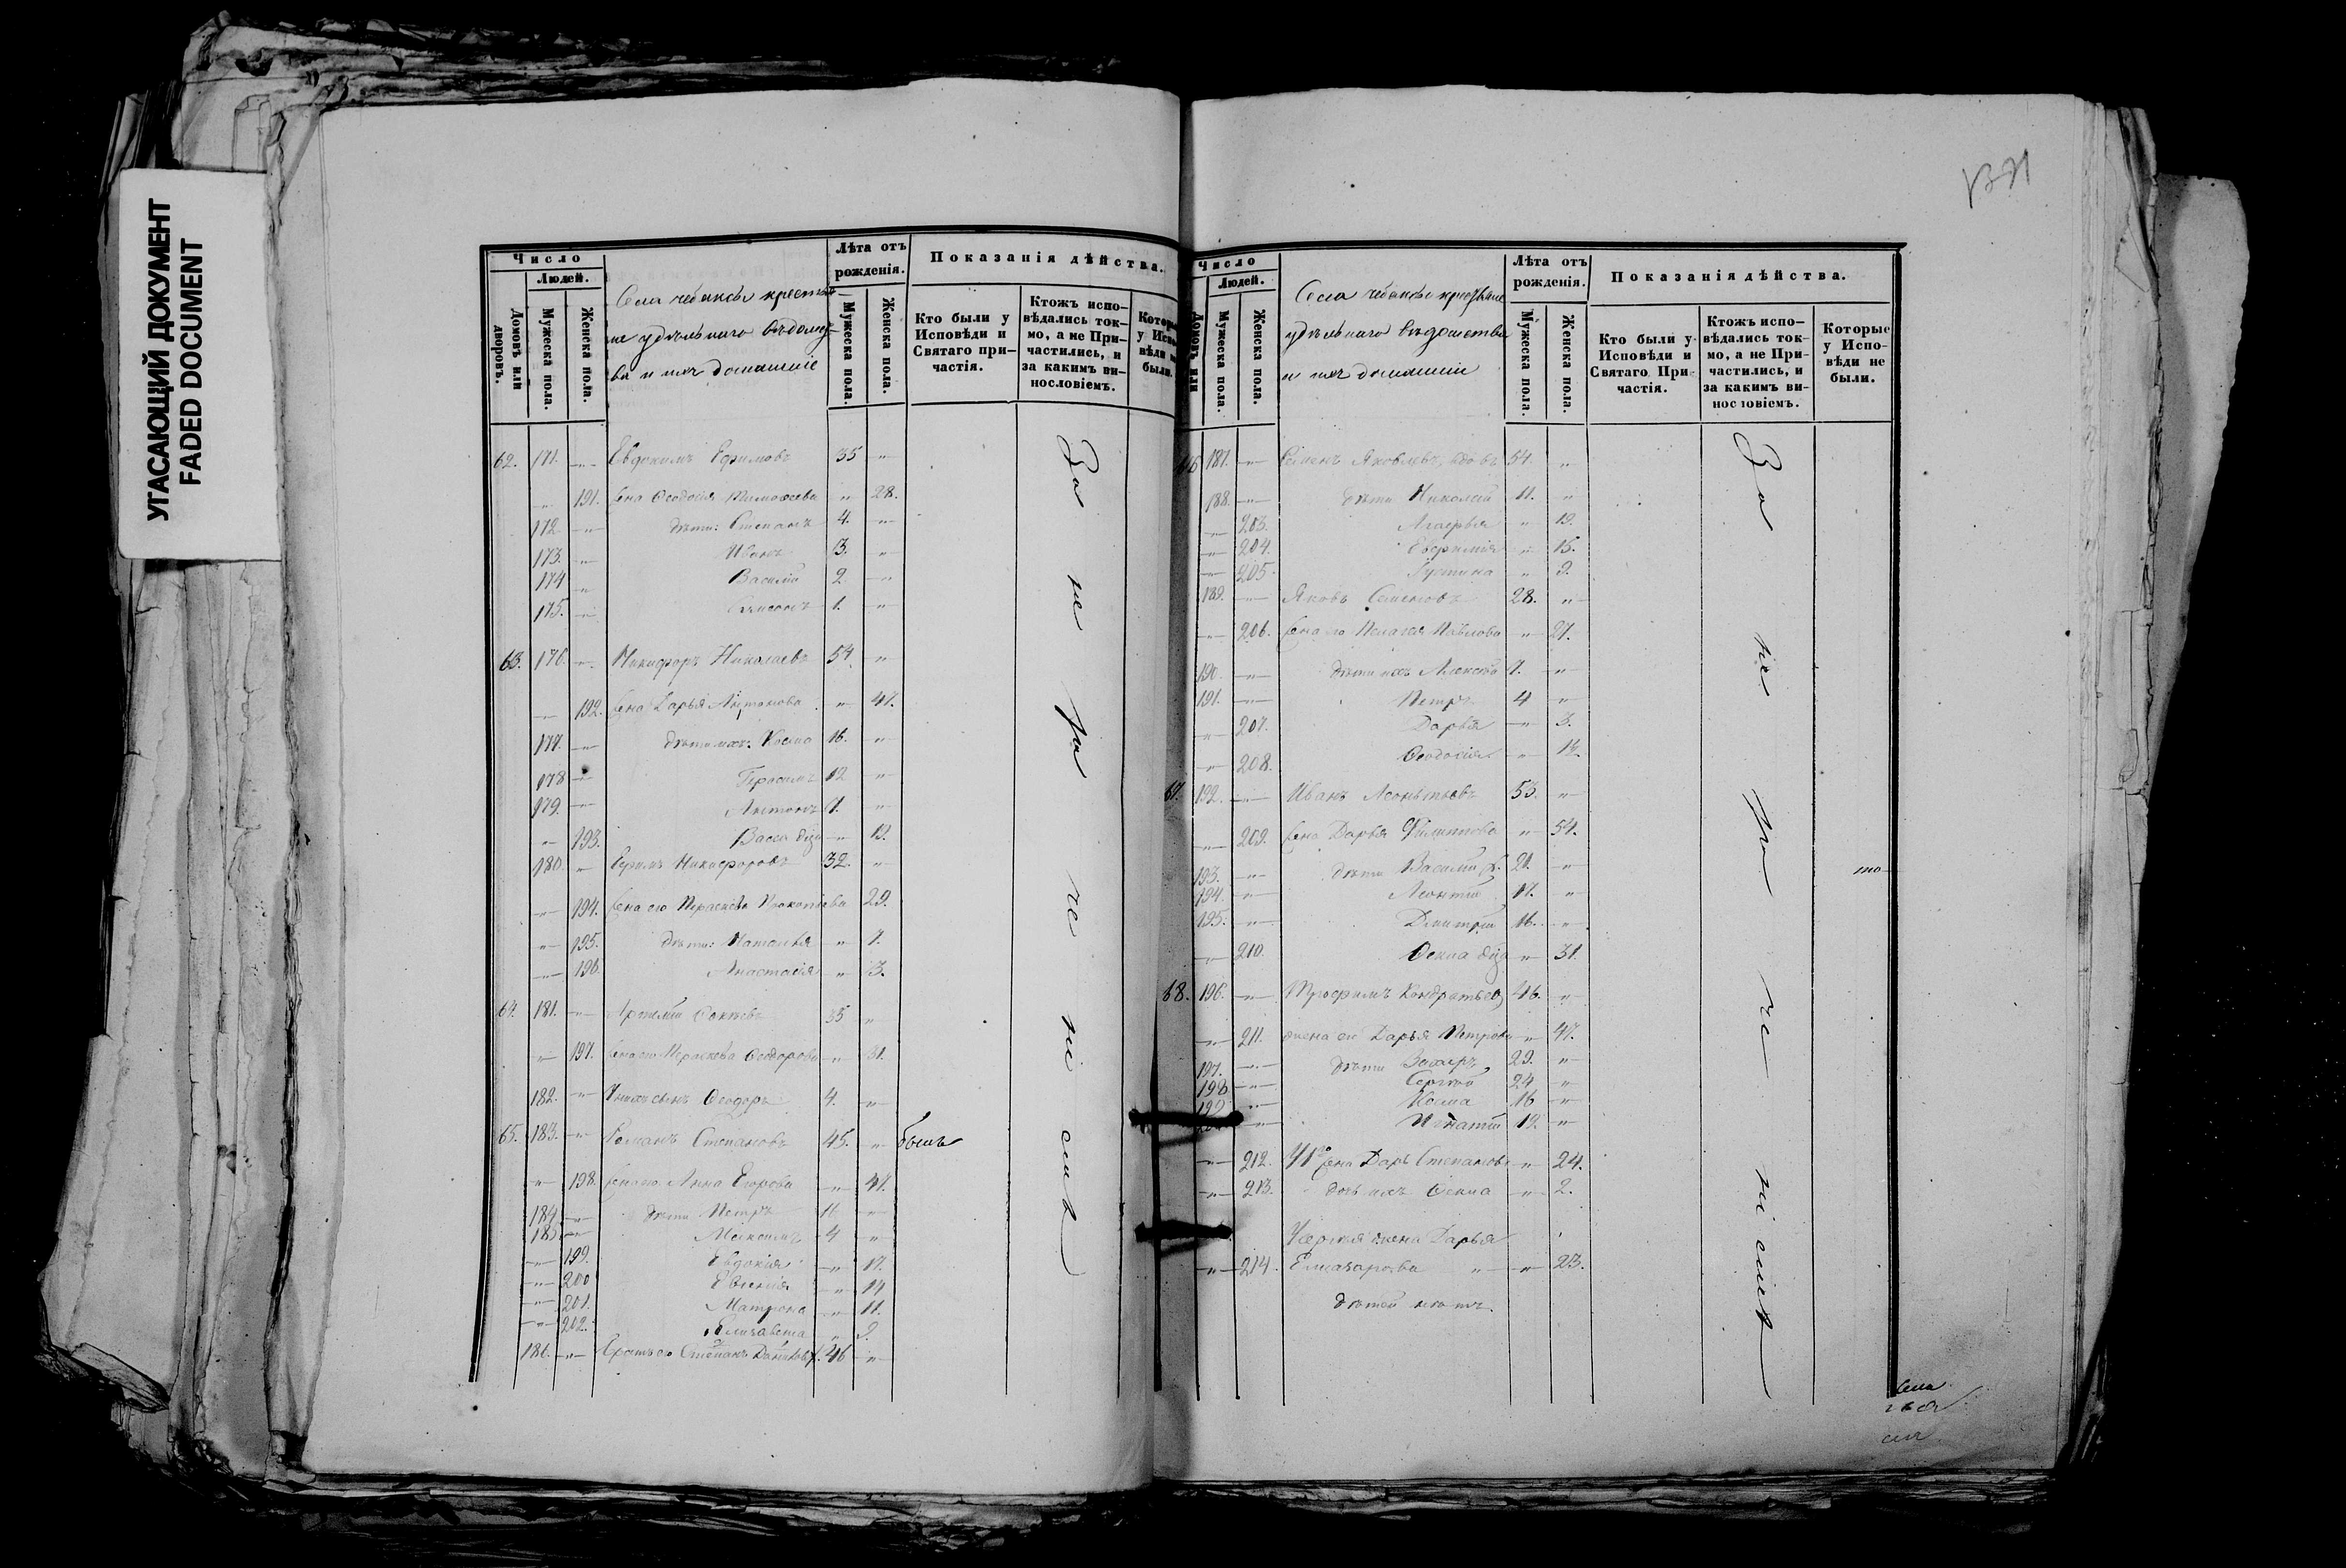 УГАСАЮЩИЙ ДОКУМЕНТ
FADED DOCUMENT
Число
Людей.
Домовъ или дворовъ.
Мужеска пола.
Женска пола.
Лѣта отъ рожденія.
Мужеска пола.
Женска пола.
Показанія дѣйства.
Кто были у Исповѣди и Святаго причастія.
Ктожъ исповѣдались токмо, а не Причастились, и за какимъ винословіемъ.
62. 171. Евдокимъ Ефимовъ 35
191. Феодосія Тимофеева 28.
172. дѣти: Степанъ 4.
173. Иванъ 3.
174 Василій 2
175. 1.
63. 176. Никифоръ Николаевъ 54
192. Дарья Антонова 47.
177. дѣти ихъ: Косма 16.
178 Герасимъ 12
179. Антонъ 7.
193. Васса 19.
180. Ефимъ Никифоровъ 32.
194. жена его Параскева Прокопіева 29.
195. дѣти: Наталья 7.
196 Анастасія 3.
64. 181. 35
197. жена его Параскева Феодорова 31.
182. сынъ Феодоръ 4.
65. 183. Романъ Степановъ 45. былъ
198. жена его Анна Егорова 47.
184 дѣти Петръ 11
185 Максимъ 4
199. Евдокія 17.
200 Евгенія 14
201. Матрона 11.
202. Елизавета 9.
186. Братъ его Степанъ 46
За не ра че ні емъ
Число
Людей.
Мужеска пола.
Женска пола.
Села крестьяне
удѣльнаго вѣдомства
и ихъ домашніе
Лѣта отъ рожденія.
Мужеска пола.
Женска пола.
Показанія дѣйства.
Кто были у Исповѣди и Святаго Причастія.
Ктожъ исповѣдались токмо, а не Причастились, и за какимъ винословіемъ.
Которые у Исповѣди не были.
66 187. Семенъ Яковлевъ, вдовъ 54.
188. дѣти Николай 11.
203. Агафья 19.
204. Евфимія 15.
205. Іустина 9.
189. Яковъ Семеновъ 28.
206. жена его Пелагея Павлова 27.
190. дѣти ихъ Алексѣй 7.
191. Петръ 4
207. Дарья 3.
208. Феодосія
67. 192. Иванъ Леонтьевъ 53.
209. жена Дарья Филиппова 54.
193. дѣти Василій 21.
194. Леонтій 17.
195. Дмитрій 16.
210. Фекла 31.
68. 196. Трофимъ Кондратьевъ 46.
211. жена его Дарья Петрова 47.
197. дѣти Захаръ 29.
198 Сергей 24
199 Косма 16
Игнатій 12.
212. жена Дарья Степанова 24.
213. дочь ихъ Фекла 2.
жена Дарья
214. Елеазарова 23.
дѣтей нѣтъ.
За не ра че ні емъ